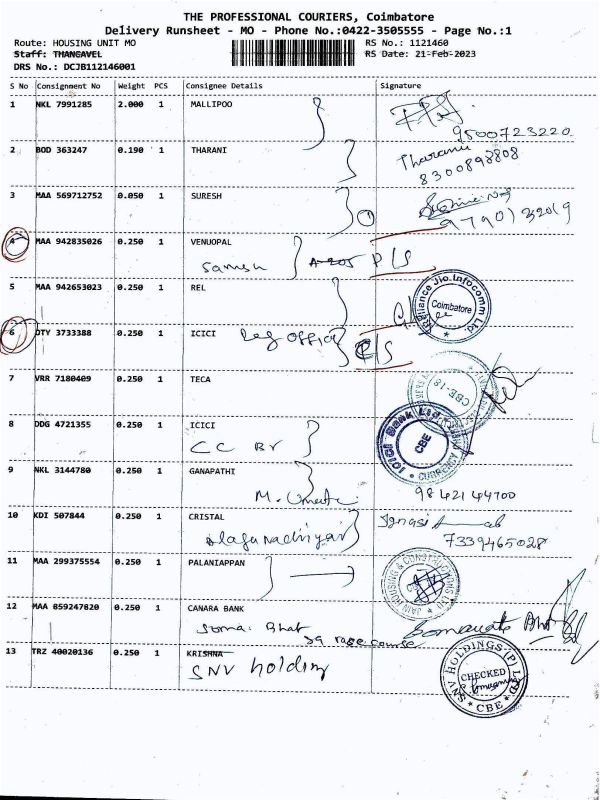 THE PROFESSIONAL COURIERS, Coimbatore
Delivery Runsheet - MO - Phone No.:0422-3505555 - Page No.:1
Route: HOUSING UNIT MO RS No.: 1121460
Staff: THANGAVEL RS Date: 21-Feb-2023
DRS No.: DCJB112146001
S No Consignment No Weight PCS Consignee Details Signature
1 NKL 7991285 2.000 1 MALLIPOO
9500723220
2 BOD 363247 0.190 1 THARANI Tharani
8300898808
3 MAA 569712752 0.050 1 SURESH
9790132019
4 MAA 942835026 0.250 1 VENUOPAL
Samesh A-205 P/S
5 MAA 942653023 0.250 1 REL
Reliance Jio Infocomm Ltd. Coimbatore
6 DTY 3733388 0.250 1 ICICI Reg office P/S
7 VRR 7180409 0.250 1 TECA
CBE-18
8 DDG 4721355 0.250 1 ICICI
CC Br
ICICI Bank Ltd. CBE CURRENCY
9 NKL 3144780 0.250 1 GANAPATHI
M. 98421 44700
10 KDI 507844 0.250 1 CRISTAL
7339465028
11 MAA 299375554 0.250 1 PALANIAPPAN
JAIN HOUSING & CONSTRUCTIONS LTD
12 MAA 859247820 0.250 1 CANARA BANK
Somai Bhat
race course
13 TRZ 40020136 0.250 1 KRISHNA
SNV holding
SNV HOLDINGS (P) LTD CHECKED CBE